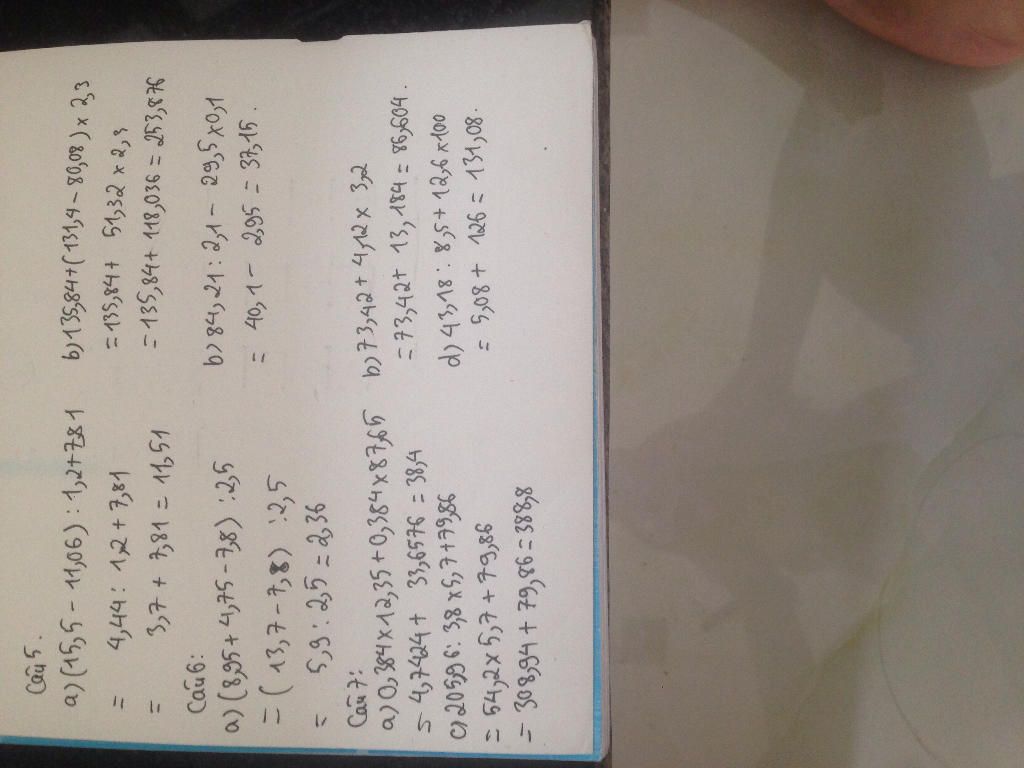 Câu 5.
a) (15,5 - 11,06) : 1,2+7,81
= 4,44 : 1,2 + 7,81
= 3,7 + 7,81 = 11,51
b) 135,84+(131,4 - 80,08) x 2,3
= 135,84+ 51,32 x 2,3
= 135,84+ 118,036 = 253,876
Câu 6:
a) (8,95+4,75-7,8) :2,5
= (13,7-7,8) :2,5
= 5,9 : 2,5 = 2,36
b) 84,21 : 2,1 - 29,5 x0,1
= 40,1 - 2,95 = 37,15.
Câu 7:
a) 0,384x12,35+0,384x87,65
= 4,7424+ 33,6576 = 38,4
b) 73,42 + 4,12 x 3,2
= 73,42+ 13,184 = 86,604.
c) 205,96: 3,8 x5,7+79,86
= 54,2x5,7 + 79,86
= 308,94 + 79,86 = 388,8
d) 43,18 : 8,5+ 12,6x100
= 5,08 + 126 = 131,08.